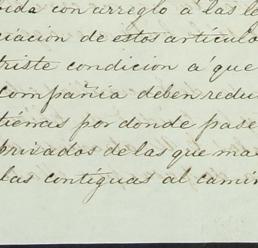 bida con arreglo a las le
ciacion de estos articulo
triste condicion á que
compañia deben redu
tierras por donde pase
privados de las que ma
las contiguas al camin